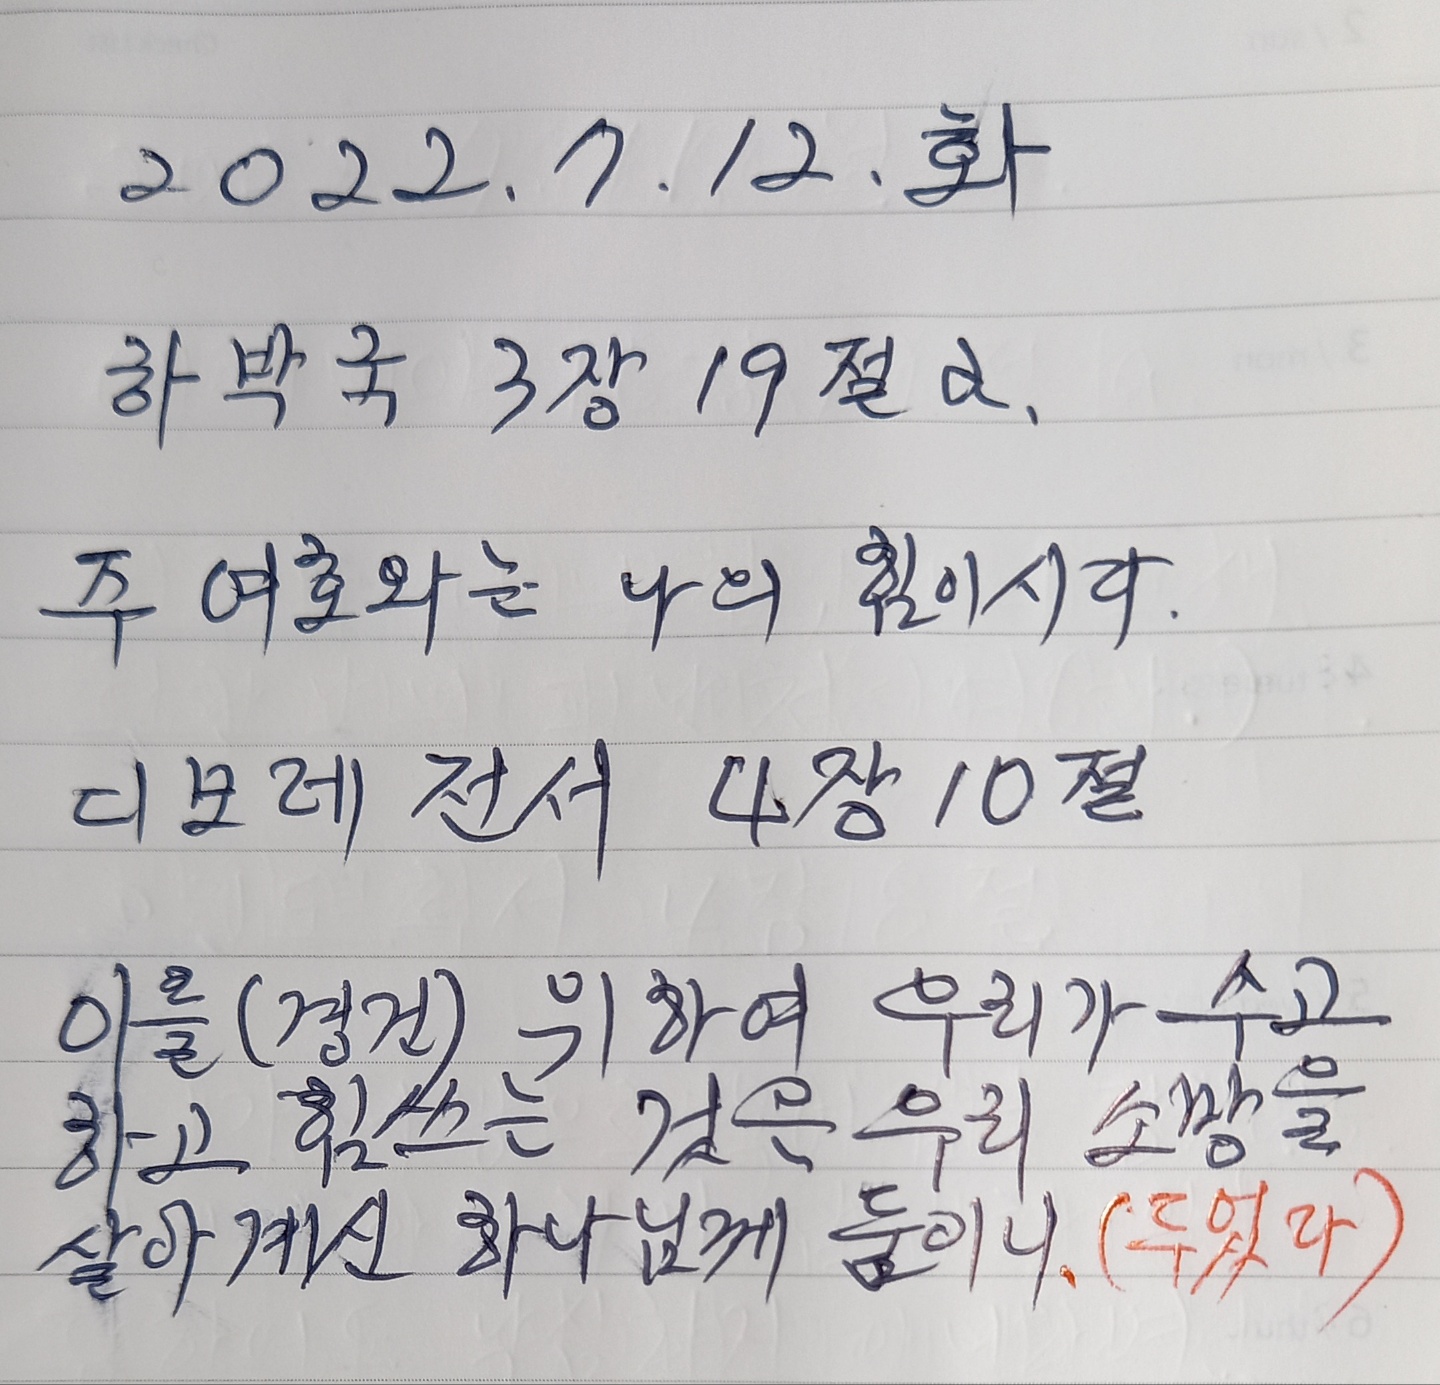 2022.7.12.화
하박국 3장 19절 a.
주 여호와는 나의 힘이시다.
디모데 전서 4장 10절
이를(경건) 위하여 우리가 수고
하고 힘쓰는 것은 우리 소망을
살아계신 하나님께 둠이니.(두었다)